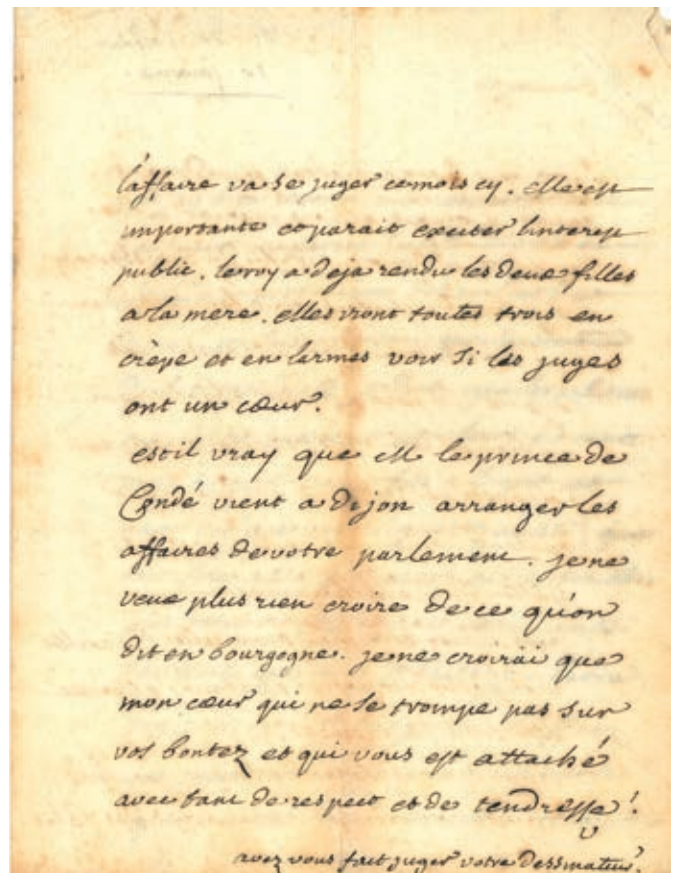 l'affaire va se juger ce mois cy. elle est
importante et parait exciter linterest
public. le roy a deja rendu les deux filles
a la mere. elles iront toutes trois en
crèpe et en larmes voir si les juges
ont un cœur.
est il vray que M le prince de
Condé vient a Dijon arranger les
affaires de votre parlement. je ne
veux plus rien croire de ce qu'on
dit en bourgogne. je ne croirai que
mon cœur qui ne se trompe pas sur
vos bontez et qui vous est attaché
avec tant de respect et de tendresse!
V
avez vous fait juger votre dessinateur?